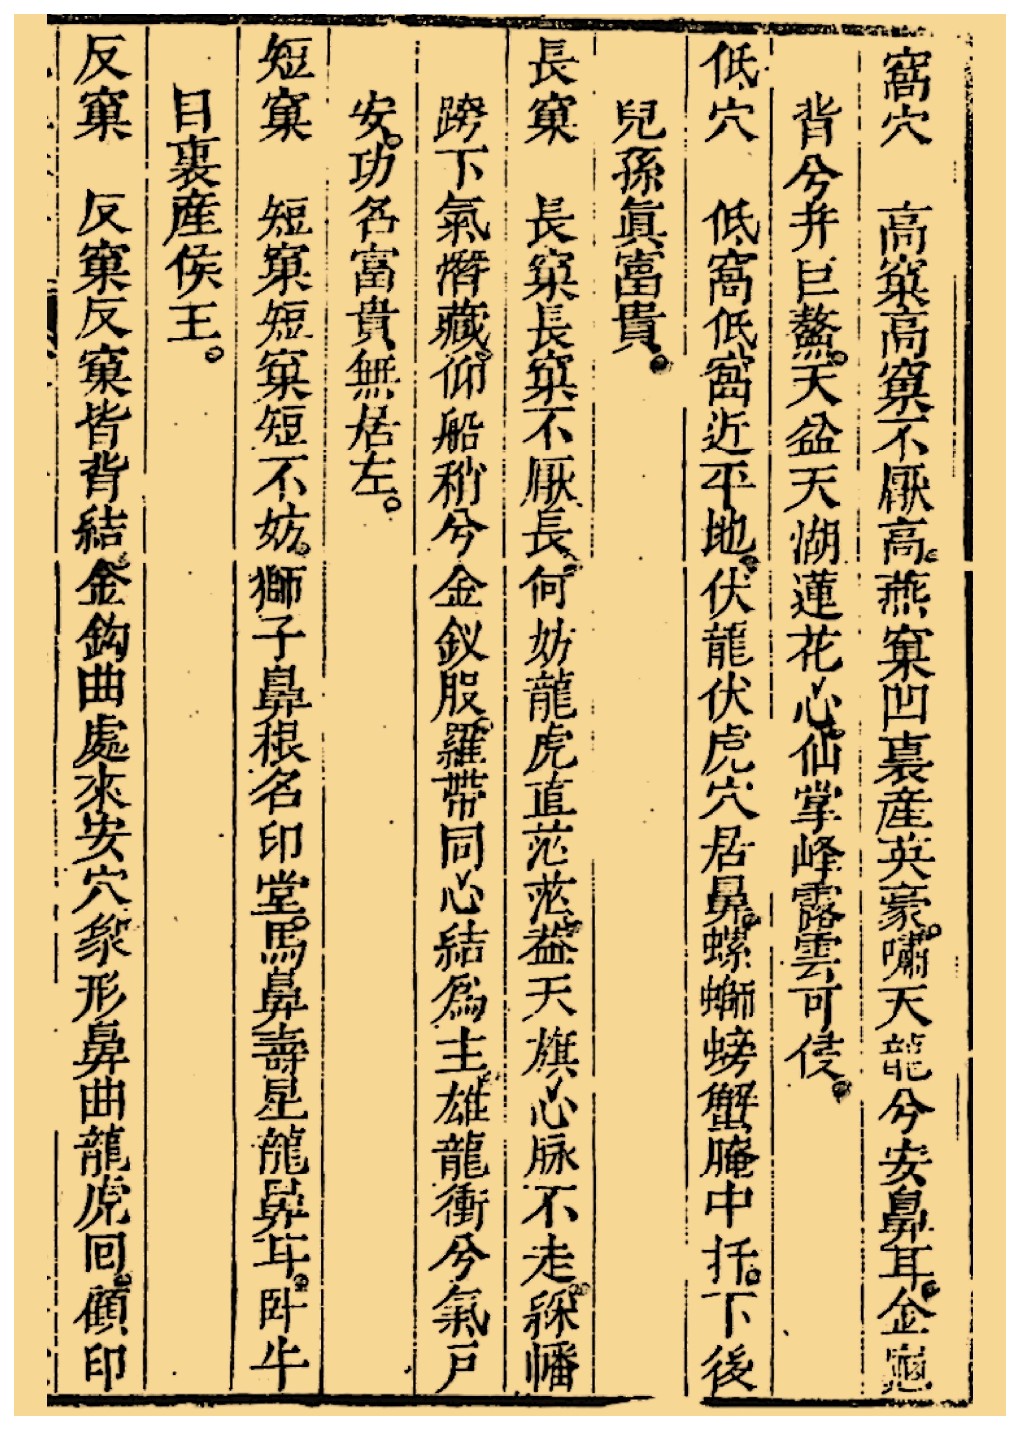 窩穴　高窠高窠不厭高燕窠凹裏産英豪嘯天龍兮安鼻耳金
背兮弁巨鰲天盆天湖蓮花心仙掌峰露雲可侵
低穴　低窩低窩近平地伏龍伏虎穴居鼻螺螄螃蟹腌中扦下後
兒孫眞富貴
長窠　長窠長窠不厭長何妨龍虎直茫茫益天旗心脉不走綵幡
蹐下氣潛藏仰船稍兮金釵股羅帶同心結爲主雄龍衝兮氣戸
安功名富貴無居左
短窠　短窠短窠短不妨獅子鼻根名印堂馬鼻壽星龍鼻耳卧牛
目裏産侯王
反窠　反窠反窠皆背結金鈎曲處來安穴象形鼻曲龍虎回顧印